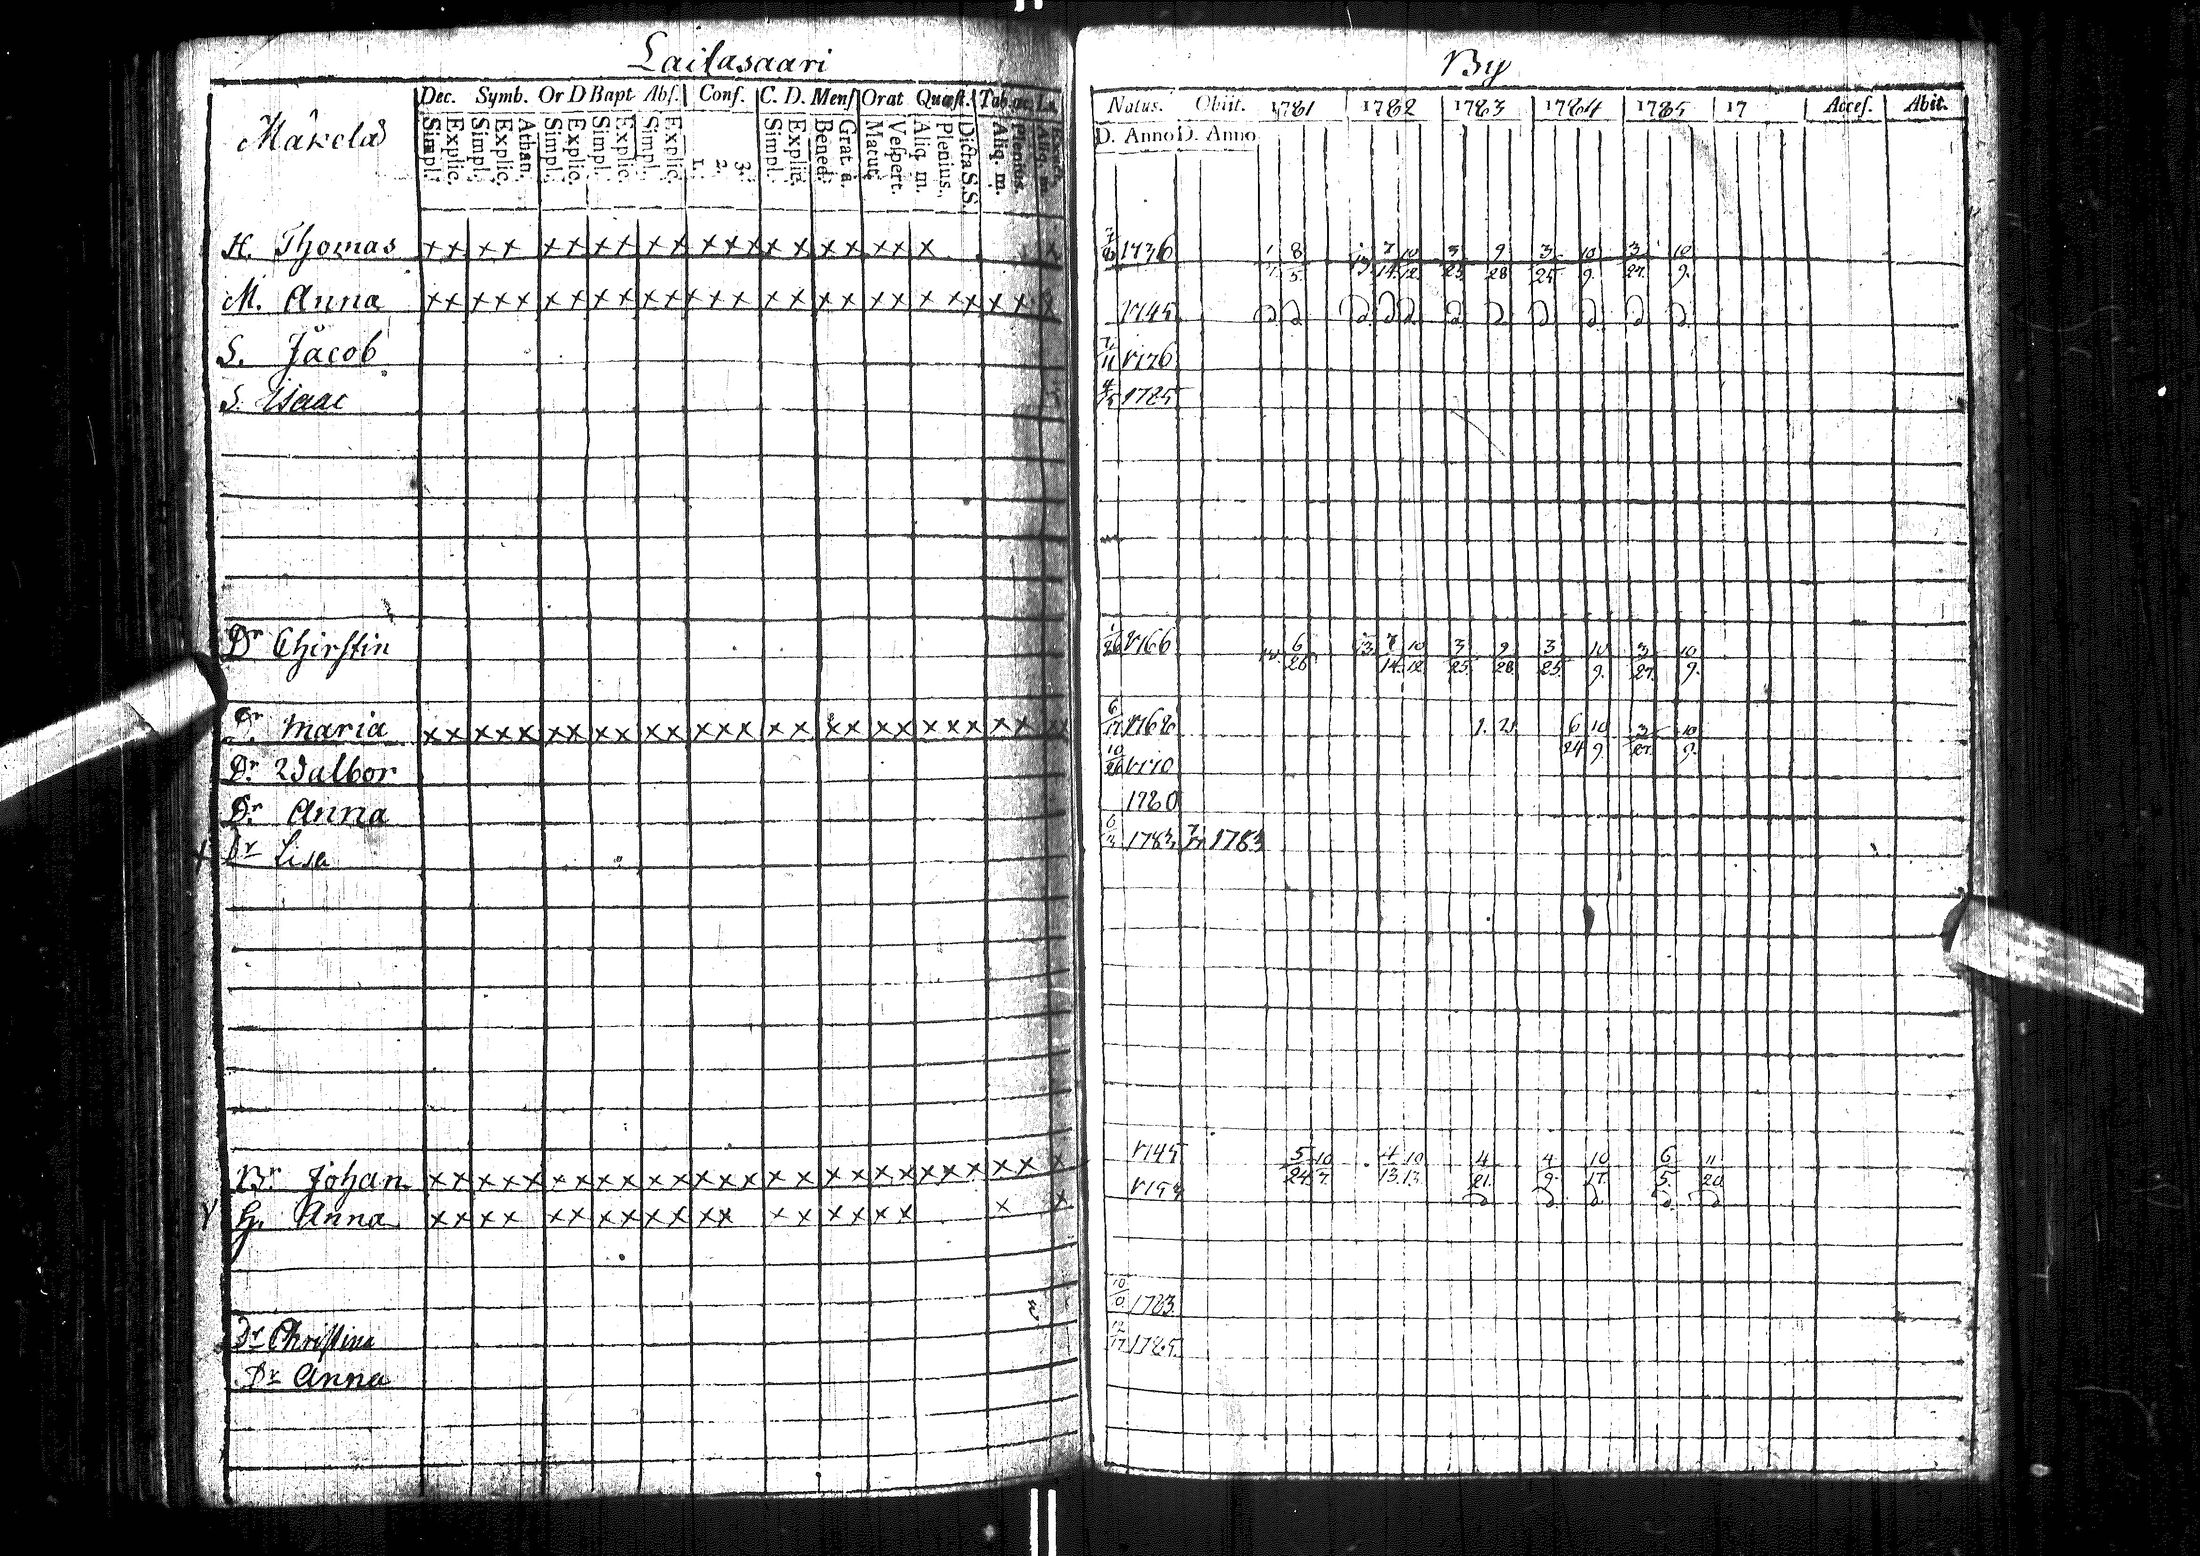 Lailasaari By
Dec. Symb. Or D Bapt Abs. Conf. C. D. Mens Orat Quæst. Tab. Natus. Obiit. 1781 1782 1783 1784 1785 17 Acces. Abit.
Simpl. Explic. Simpl. Explic. Athan. Simpl. Explic. Simpl. Explic. Simpl. Explic. 1. 2. 3. Simpl. Explic. Bened. Grat. a. Matut. Vespert. Aliq. m. Plenius. Dicta S.S. Aliq. m. Plenius. Aliq. m. D. Anno D. Anno
Mäkelä
H. Thomas x x x x x x x x x x x x x x x x x x x x x 1736 1 8/5 7/14 10/12 3/25 9/28 3/25 10/9 3/27 10/9
M. Anna x x x x x x x x x x x x x x x x x x x x x x x x x 1745
S. Jacob 1776
S. Isaac 1785
Dr Chirstin 1/26 1766 6/26 7/14 10/12 3/25 9/28 3/25 10/9 3/27 10/9
Dr Maria x x x x x x x x x x x x x x x x x x x x x x x x x x x 6/17 6/24 10/9 3/27 10/9
Dr. Walbor 10/26 1770
Dr Anna 1780
Dr Lisa 1783 1783
Br. Johan x x x x x x x x x x x x x x x x x x x x x x x x x x 1745 5/24 10/7 4/13 10/13 4/21 4/9 10/17 6/5 11/20
H. Anna x x x x x x x x x x x x x x x x x x x x
Dr Christina 1783
Dr Anna 12/17 1785